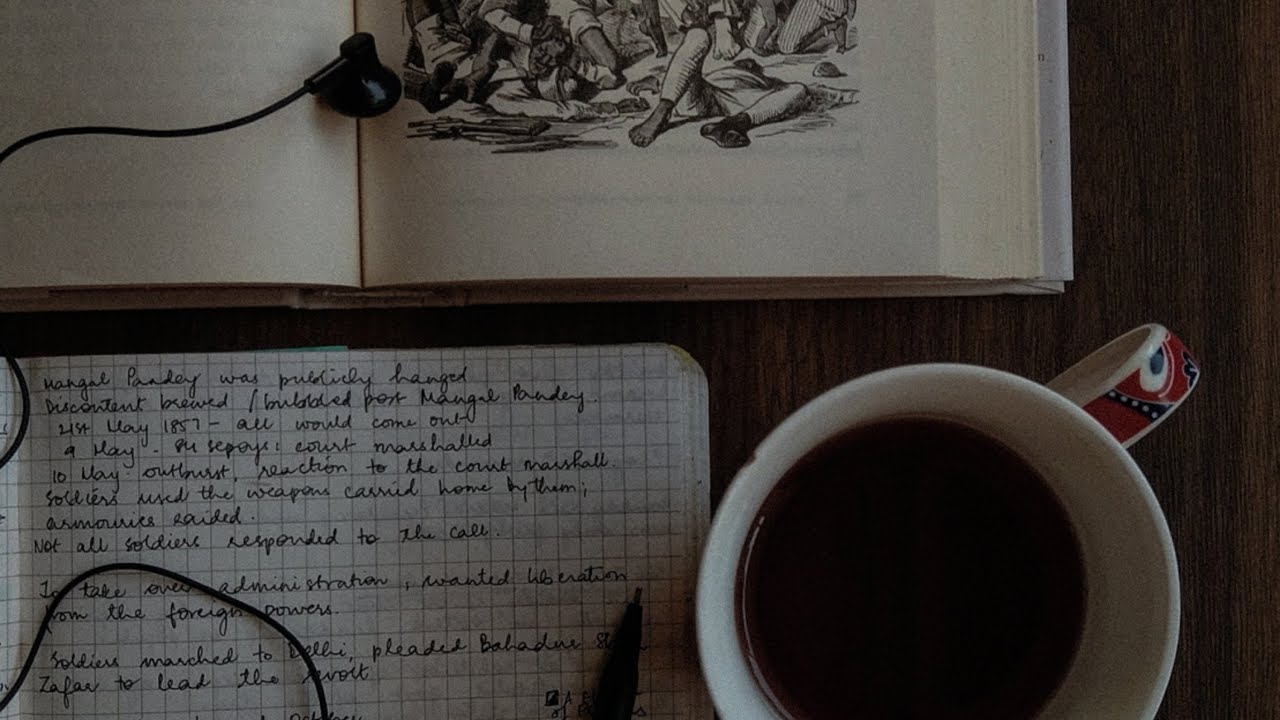 Mangal Pandey was publicly hanged
Discontent brewed / bubbled post Mangal Pandey.
21st May 1857 - all would come out
9 May - 84 sepoys: court marshalled
10 May - outburst, reaction to the court marshall.
Soldiers used the weapons carried home by them;
armouries raided.
Not all soldiers responded to the call.
To take over administration, wanted liberation
from the foreign powers.
Soldiers marched to Delhi, pleaded Bahadur
Zafar to lead the revolt